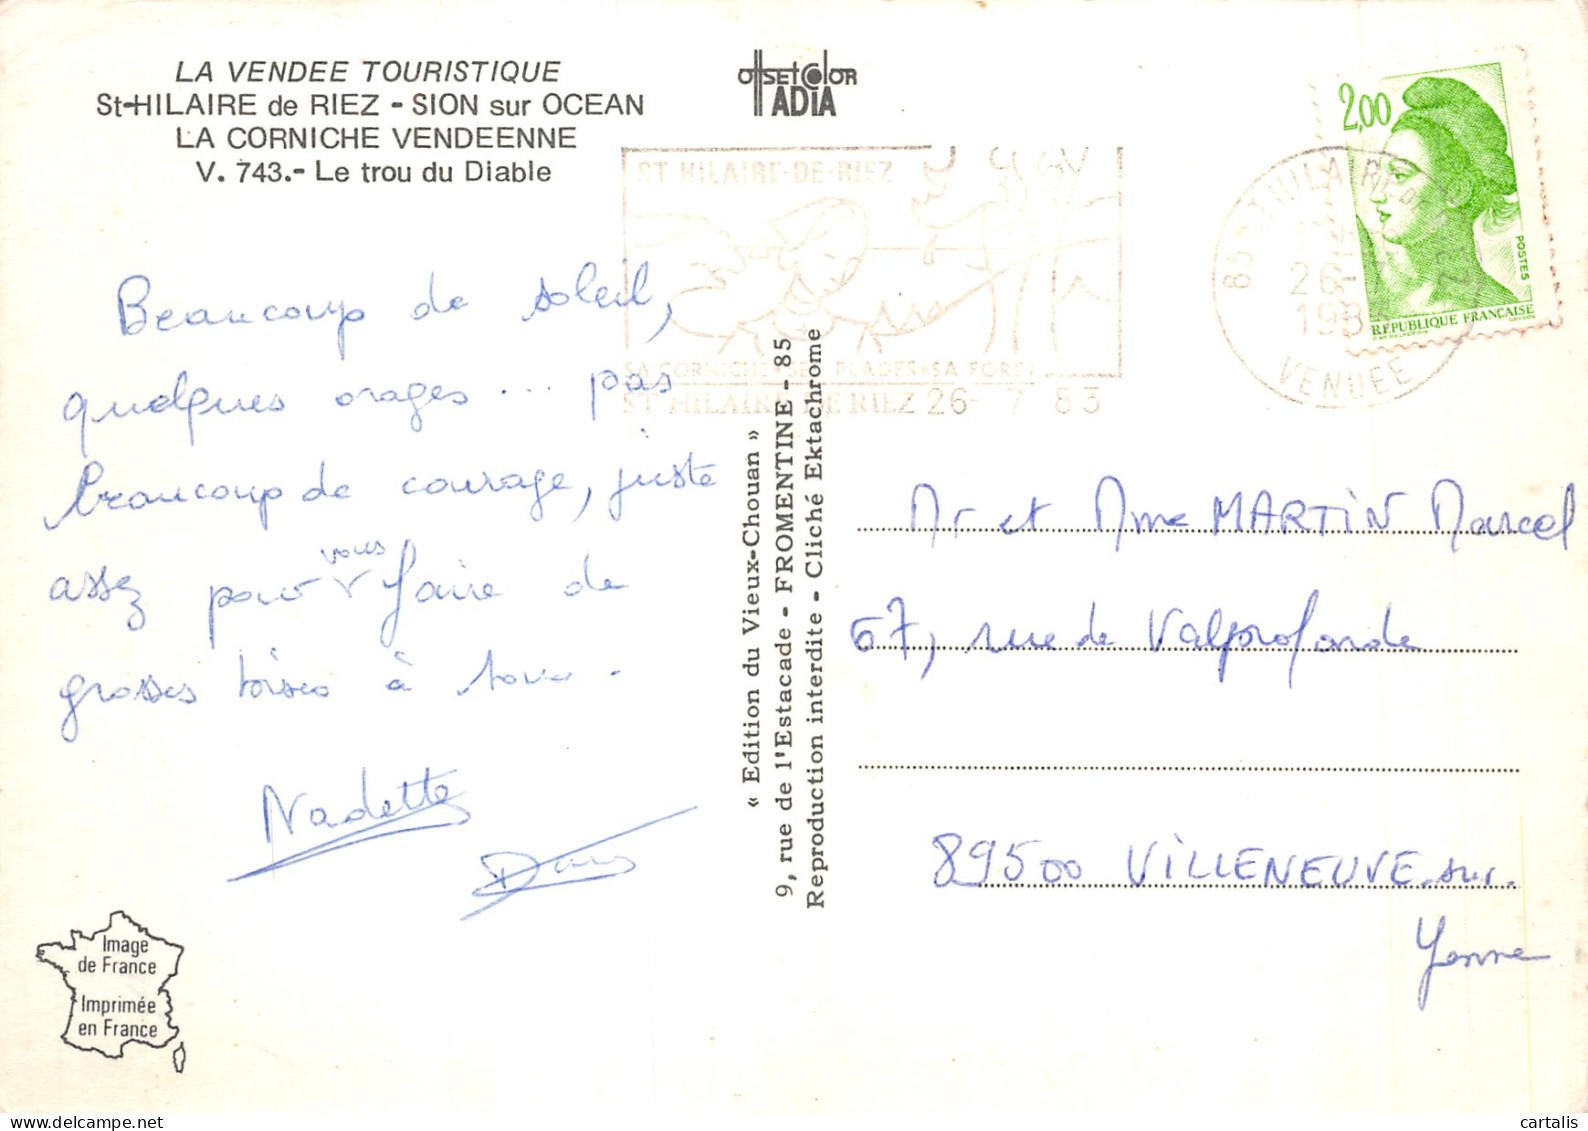 LA VENDEE TOURISTIQUE
St-HILAIRE de RIEZ - SION sur OCEAN
LA CORNICHE VENDEENNE
V. 743.- Le trou du Diable
OffSEt COlOR
ADIA
2,00
POSTES
REPUBLIQUE FRANÇAISE
ST HILAIRE-DE-RIEZ
SA CORNICHE SES PLAGES SA FORET
ST HILAIRE DE RIEZ 26- 7 83
85 ST HILAIRE DE RIEZ
26-7
1983
VENDEE
Beaucoup de soleil,
quelques orages ... pas
beaucoup de courage, juste
assez pour vous faire de
grosses bises à tous.
Nadette
« Edition du Vieux-Chouan »
9, rue de l'Estacade - FROMENTINE - 85
Reproduction interdite - Cliché Ektachrome
Mr et Mme MARTIN Marcel
67, rue de Valprofonde
89500 VILLENEUVE-sur-
Yonne
Image
de France
Imprimée
en France
cartalis